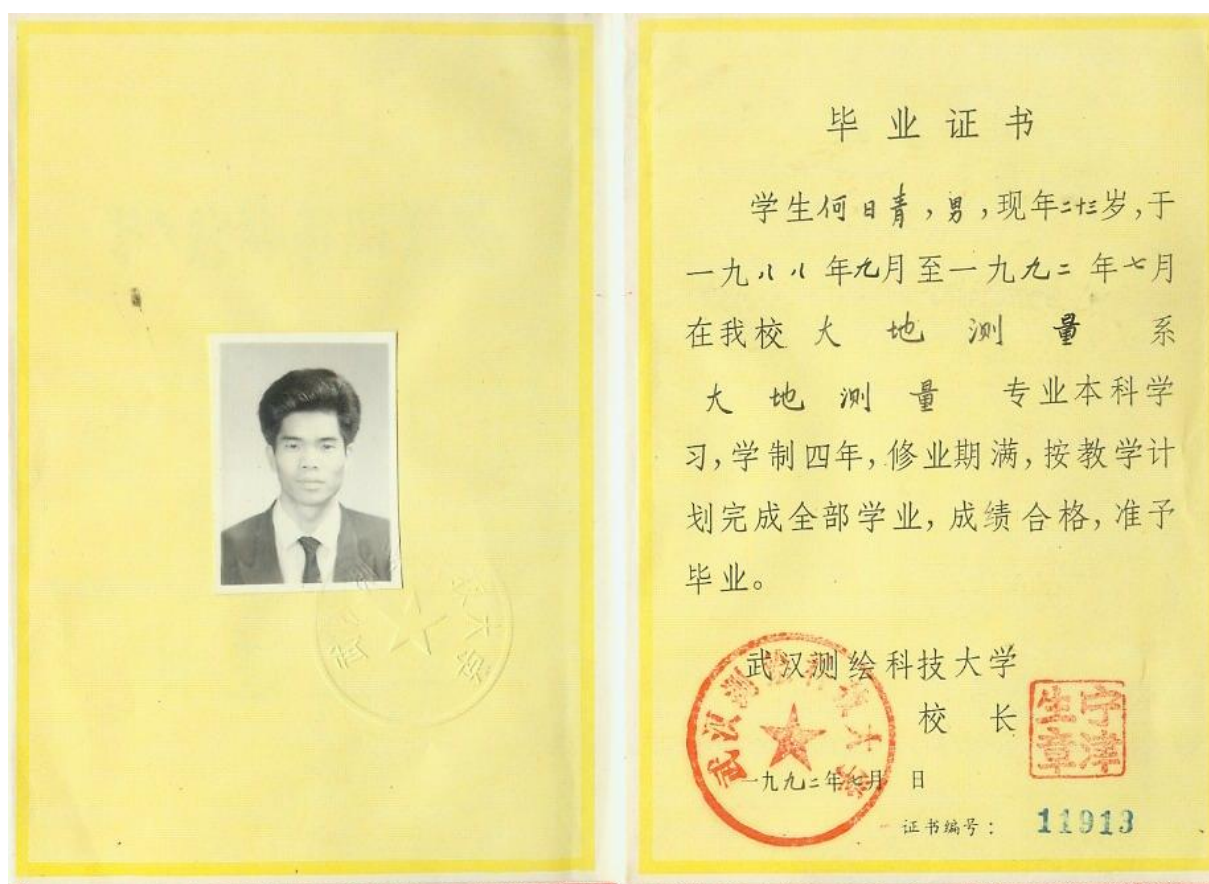 毕业证书
学生何日青,男,现年二十三岁,于
一九八八年九月至一九九二年七月
在我校大地测量系
大地测量专业本科学
习,学制四年,修业期满,按教学计
划完成全部学业,成绩合格,准予
毕业。
武汉测绘科技大学
校长
宁津生章
武汉测绘科技大学
一九九二年七月 日
证书编号: 11913